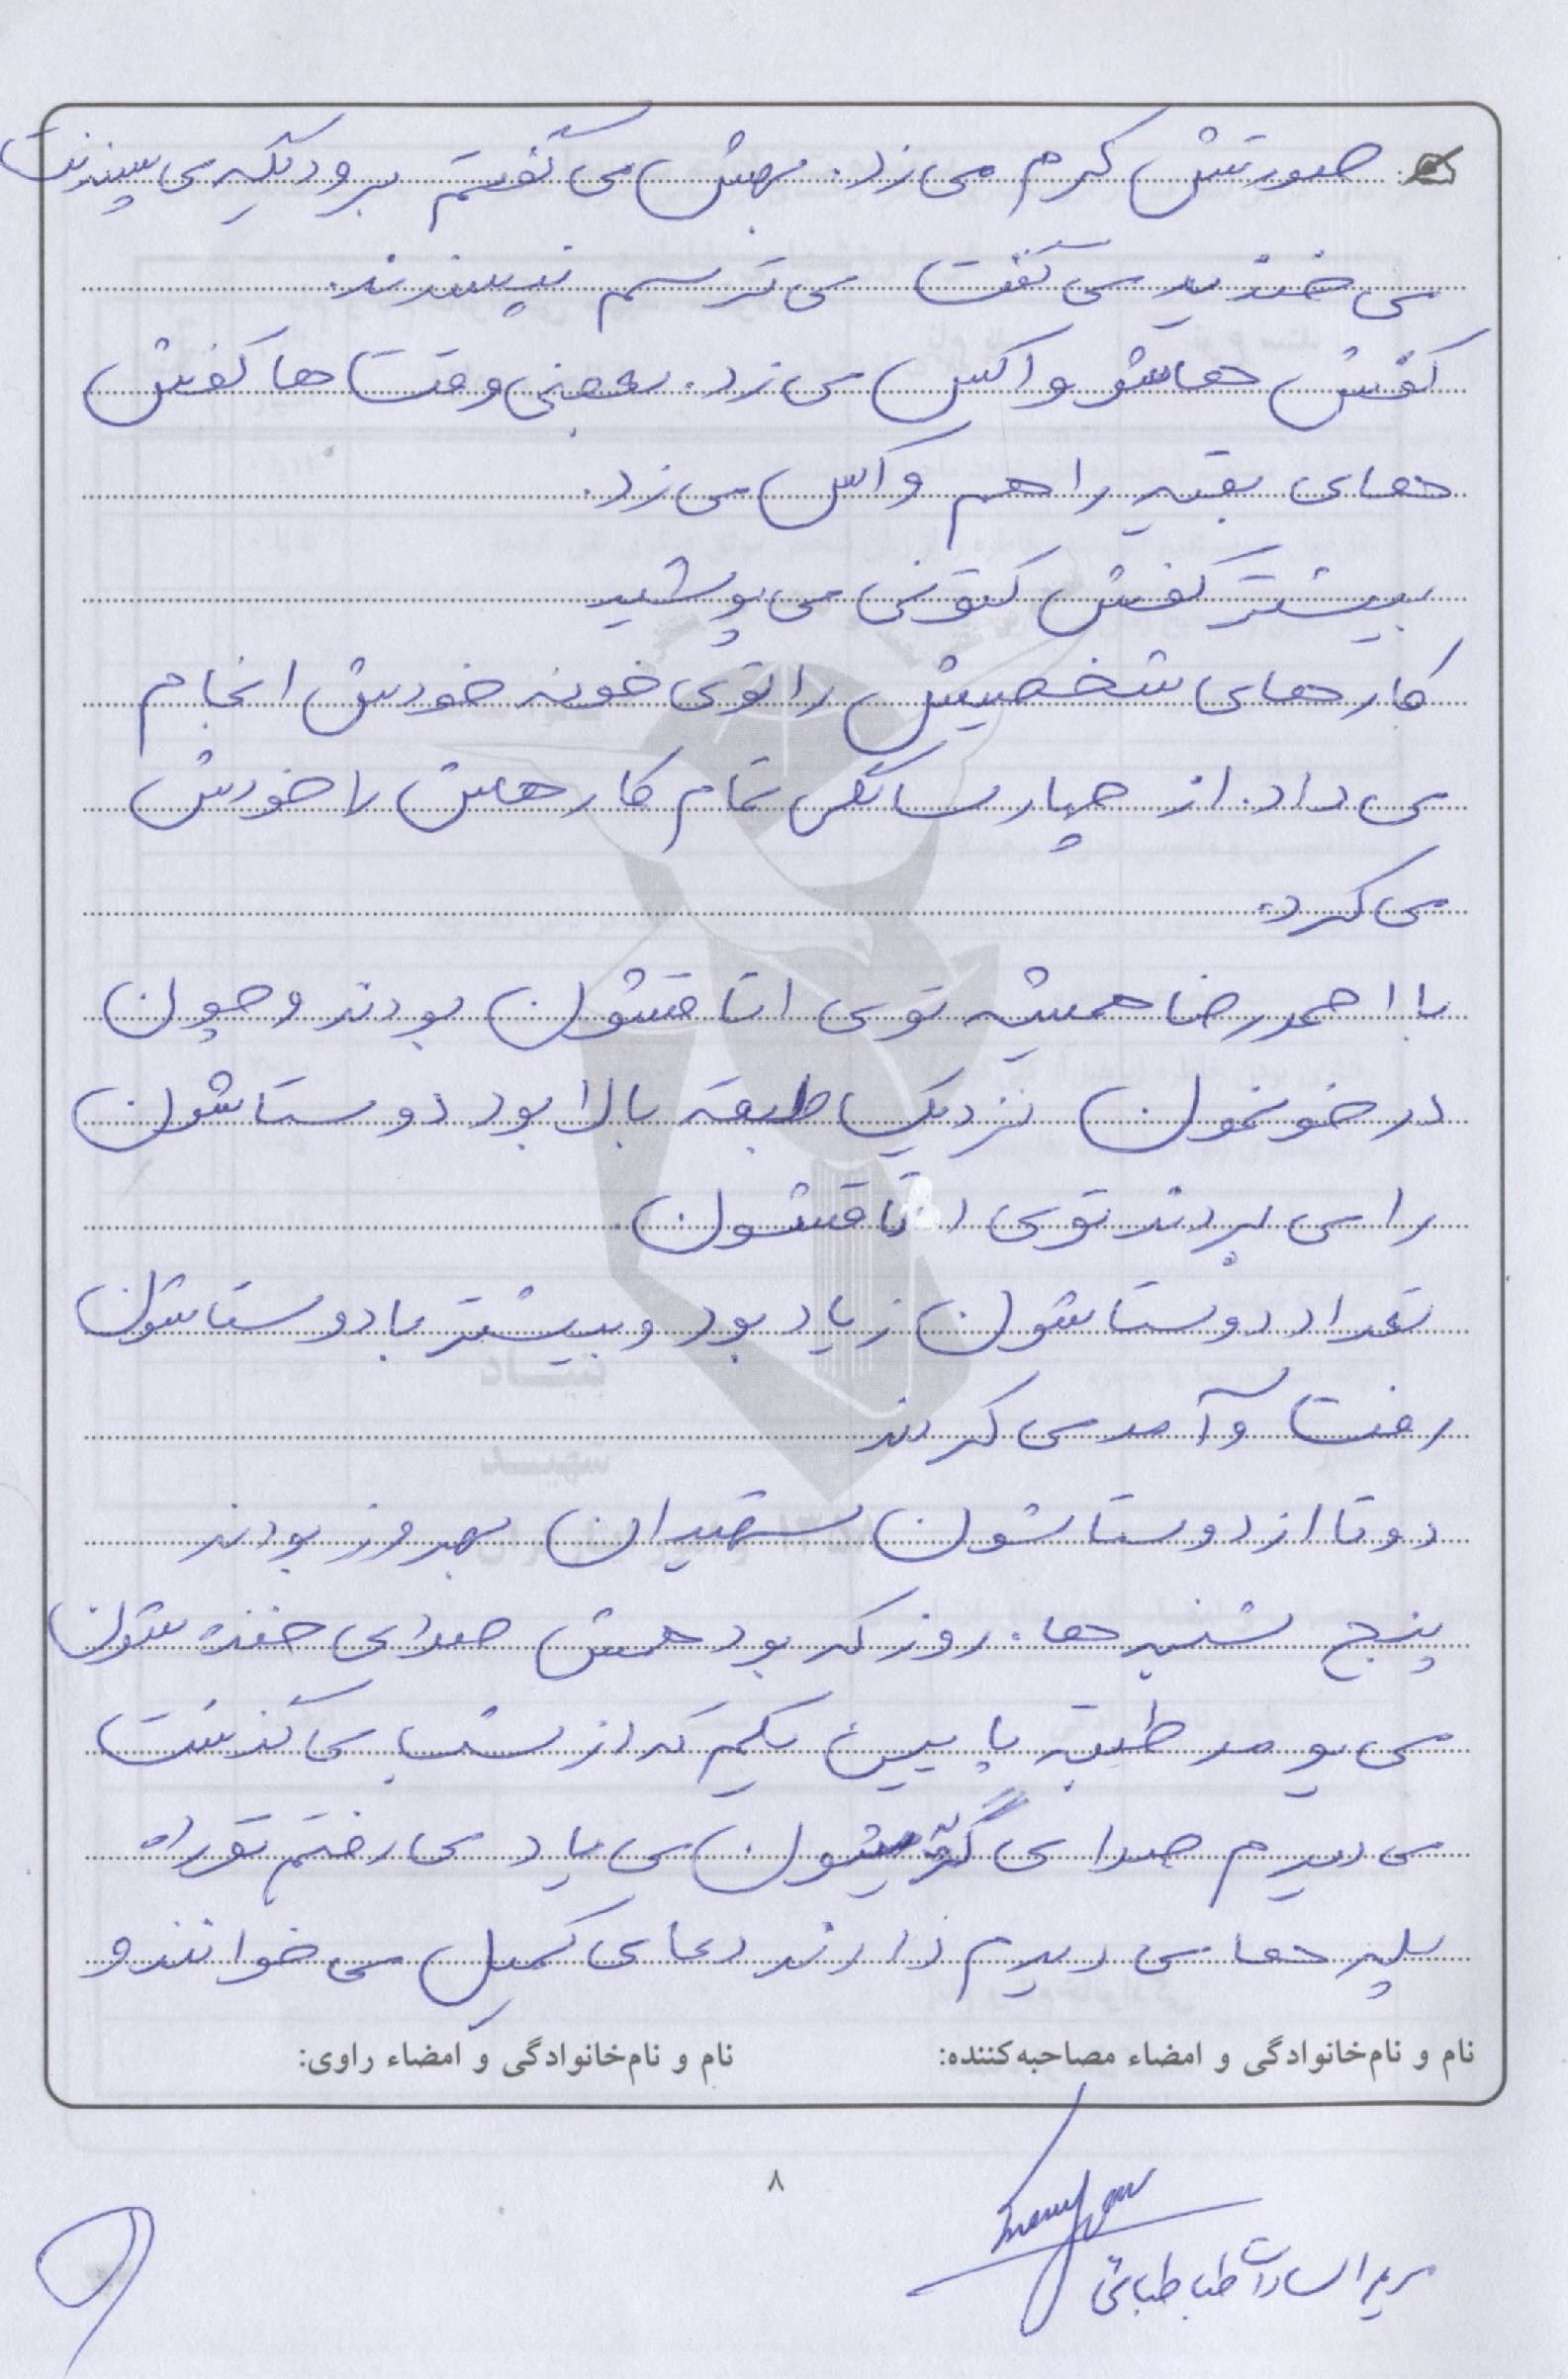 صورتش کرم می زد. بهش می گفتم برو دیگه می پسندنت
می خندید می گفت می ترسم نپسندند.
کفش هاشو واکس می زد. بعضی وقت ها کفش
های بقیه را هم واکس می زد.
بیشتر کفش کتونی می پوشید
کارهای شخصیش را توی خونه خودش انجام
می داد. از چهار سالگی تمام کارهاش را خودش
می کرد.
با احمدرضا همیشه توی اتاقشون بودند و چون
در خونمون نزدیک طبقه بالا بود دوستاشون
را می بردند توی اتاقشون.
تعداد دوستاشون زیاد بود و بیشتر با دوستاشون
رفت و آمد می کردند
دوتا از دوستاشون شهیدان بهروز بودند
پنج شنبه ها. روز که بود همش صدای خنده شون
می یومد طبقه پایین یکم که از شب می گذشت
می دیدم صدای گریشون می یاد می رفتم تو راه
پله ها می دیدم دارند دعای کمیل می خوانند و
نام و نام‌خانوادگی و امضاء مصاحبه‌کننده: نام و نام‌خانوادگی و امضاء راوی:
۸
مریم السادات طباطبائی